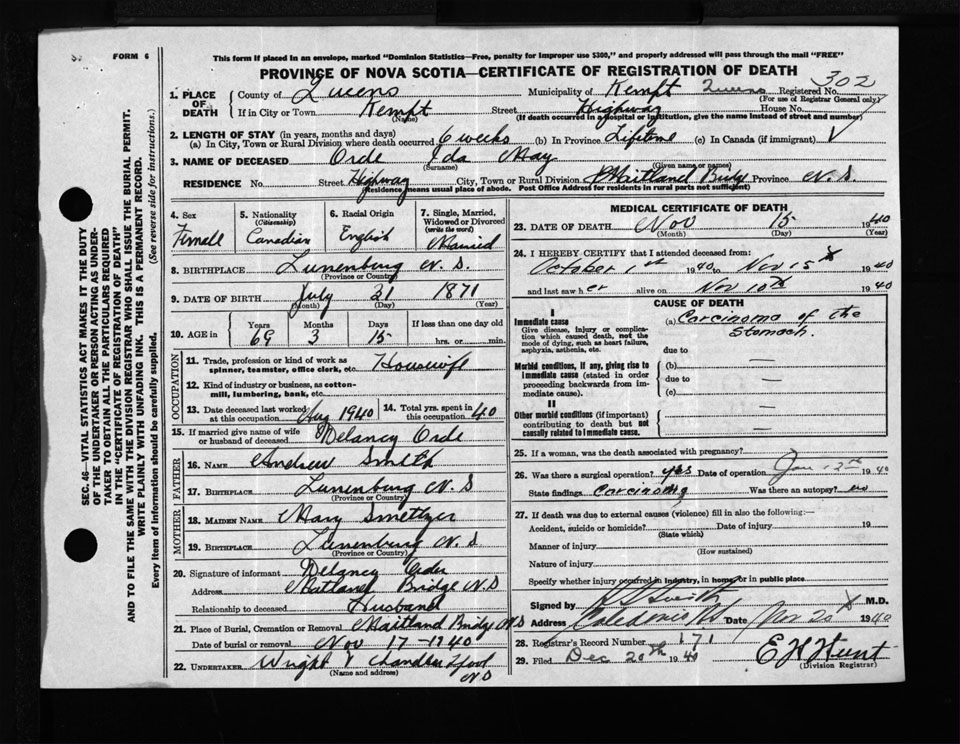 FORM 6
This form if placed in an envelope, marked "Dominion Statistics—Free, penalty for improper use $300," and properly addressed will pass through the mail "FREE"
PROVINCE OF NOVA SCOTIA—CERTIFICATE OF REGISTRATION OF DEATH
302
SEC. 46—VITAL STATISTICS ACT MAKES IT THE DUTY
OF THE UNDERTAKER OR PERSON ACTING AS UNDER-
TAKER TO OBTAIN ALL THE PARTICULARS REQUIRED
IN THE "CERTIFICATE OF REGISTRATION OF DEATH"
AND TO FILE THE SAME WITH THE DIVISION REGISTRAR WHO SHALL ISSUE THE BURIAL PERMIT.
WRITE PLAINLY WITH UNFADING INK. THIS IS A PERMANENT RECORD.
Every item of information should be carefully supplied. (See reverse side for instructions.)
1. PLACE OF DEATH
County of Queens Municipality of Kempt Queens Registered No.
(For use of Registrar General only)
If in City or Town Kempt Street Highway House No.
(Name) (If death occurred in a hospital or institution, give the name instead of street and number)
2. LENGTH OF STAY (in years, months and days)
(a) In City, Town or Rural Division where death occurred 6 weeks (b) In Province Lifetime (c) In Canada (if immigrant)
3. NAME OF DECEASED Orde Ida May
(Surname) (Given name or names)
RESIDENCE No. Street Highway City, Town or Rural Division Maitland Bridge Province N.S.
(Residence means usual place of abode. Post Office Address for residents in rural parts not sufficient)
4. Sex Female
5. Nationality (Citizenship) Canadian
6. Racial Origin English
7. Single, Married, Widowed or Divorced (write the word) Married
8. BIRTHPLACE Lunenburg N.S.
(Province or Country)
9. DATE OF BIRTH July 31 1871
(Month) (Day) (Year)
10. AGE in Years 69 Months 3 Days 15 If less than one day old
hrs. or min.
OCCUPATION
11. Trade, profession or kind of work as spinner, teamster, office clerk, etc. Housewife
12. Kind of industry or business, as cotton-mill, lumbering, bank, etc.
13. Date deceased last worked at this occupation Aug 1940 14. Total yrs. spent in this occupation 40
15. If married give name of wife or husband of deceased Delancy Orde
FATHER
16. NAME Andrew Smith
17. BIRTHPLACE Lunenburg N.S
(Province or Country)
MOTHER
18. MAIDEN NAME Mary Smeltzer
19. BIRTHPLACE Lunenburg N.S
(Province or Country)
20. Signature of informant Delancy Orde
Address Maitland Bridge N.S
Relationship to deceased Husband
21. Place of Burial, Cremation or Removal Maitland Bridge N.S
Date of burial or removal Nov 17-1940
22. UNDERTAKER Wright & Chandler L'pool N.S
(Name and address)
MEDICAL CERTIFICATE OF DEATH
23. DATE OF DEATH Nov 15 1940
(Month) (Day) (Year)
24. I HEREBY CERTIFY that I attended deceased from:
October 1st 1940 to Nov 15 1940
and last saw her alive on Nov 10th 1940
CAUSE OF DEATH
I
Immediate cause (a) Carcinoma of the Stomach.
Give disease, injury or complication which caused death, not the mode of dying, such as heart failure, asphyxia, asthenia, etc.
due to
Morbid conditions, if any, giving rise to immediate cause (stated in order proceeding backwards from immediate cause). (b) —
due to —
(c)
II
Other morbid conditions (if important) contributing to death but not causally related to immediate cause. —
—
25. If a woman, was the death associated with pregnancy?
26. Was there a surgical operation? yes Date of operation Jan 13th 1940
State findings Carcinoma Was there an autopsy? no
27. If death was due to external causes (violence) fill in also the following:—
Accident, suicide or homicide? Date of injury 19
(State which)
Manner of injury
(How sustained)
Nature of injury
Specify whether injury occurred in industry, in home, or in public place
Signed by Smith M.D.
Address Caledonia NS Date Nov 20 1940
28. Registrar's Record Number 171
29. Filed Dec 20th 1940 E H Hunt
(Division Registrar)